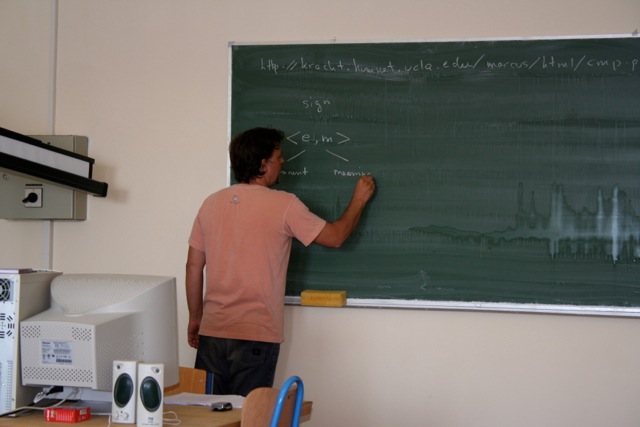 http://kracht.humnet.ucla.edu/marcus/html/cmp.p
sign
<e,m>
meaning